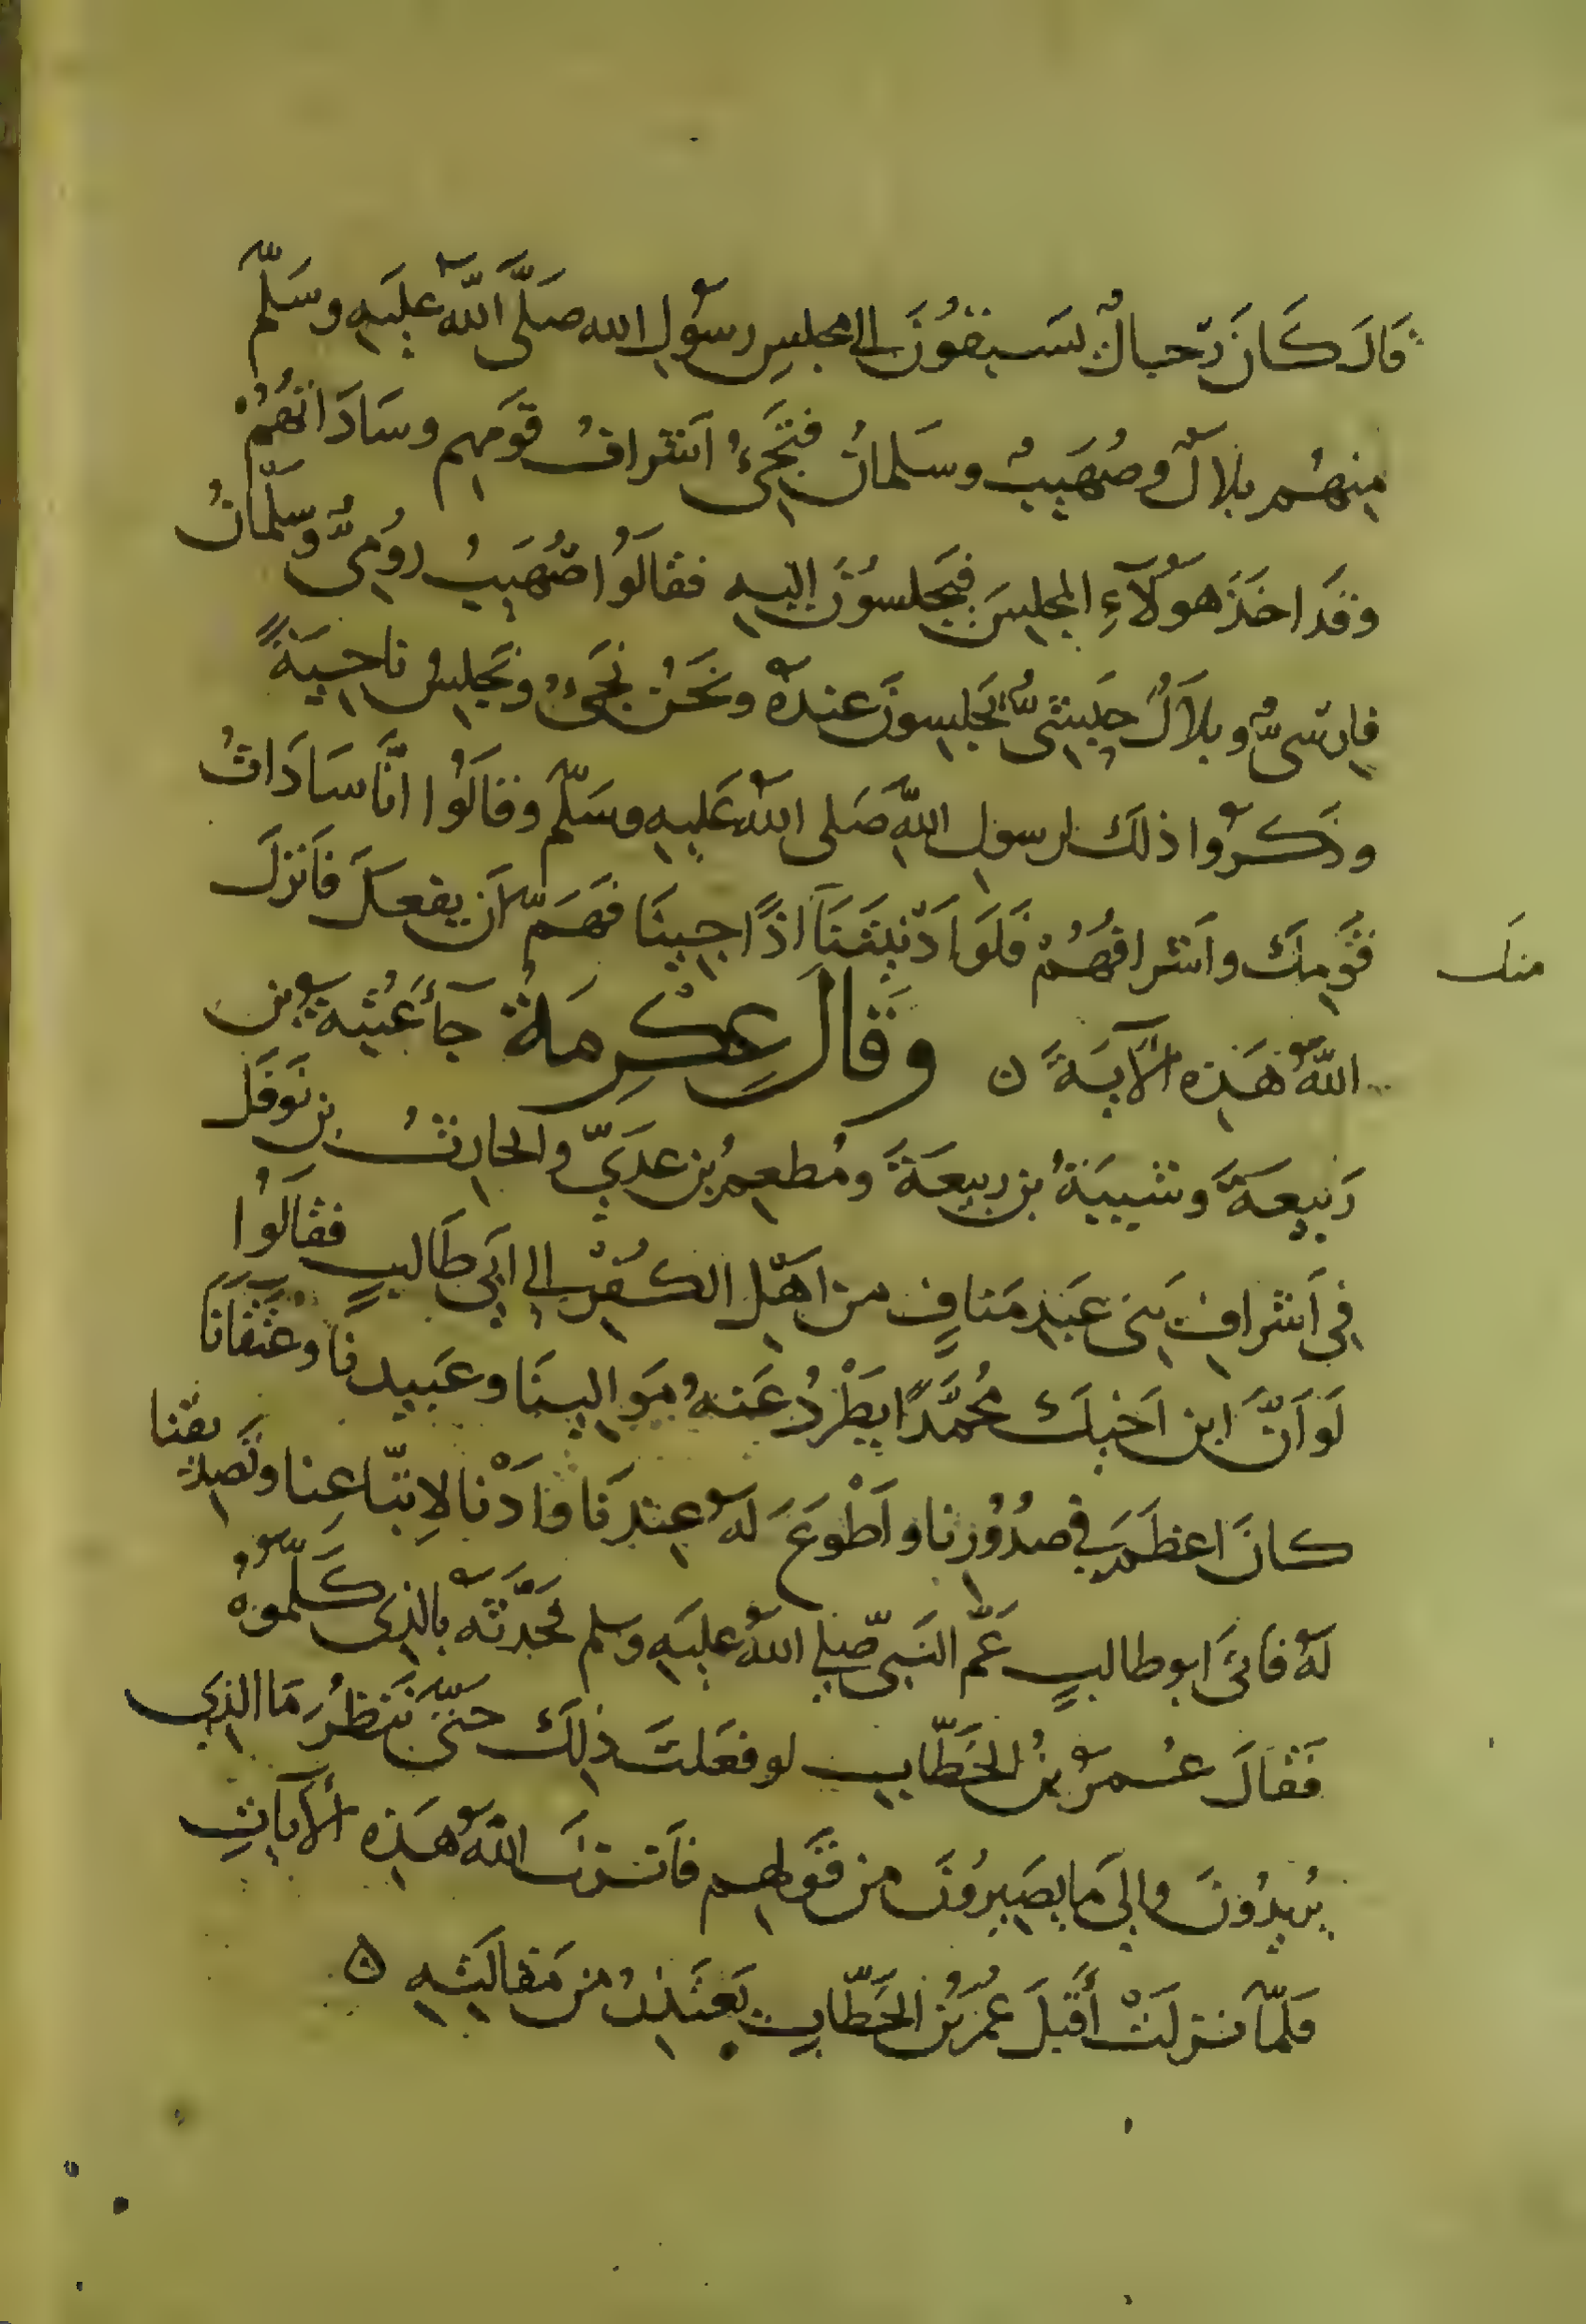 قَالَ كَانَ رجالٌ يَسبقُونَ الى مجلسِ رسُولِ الله صَلَّى اللّهُ عَلَيهِ وسَلّم
مِنهُم بلالٌ وصُهَيبٌ وسَلمانُ فتَجِىءُ اَشرافُ قَومِهِم وسَادَاتهُمْ
وقَد اخَذَ هَولآءِ المجلِسَ فيَجلسُونَ اِليهِ فقالَوُا صُهَيبُ رُومِىٌّ وسَلمَانُ
فارِسىٌّ وبلاَلٌ حَبِشىٌّ يَجلِسونَ عِندهُ ونَحنُ نَجىُ ونَجلِسُ ناحِيَةً
وذَكَرُوا ذلكَ لرسولِ اللّهِ صَلى اللهُ عَلَيهِ وسَلّم وقالَوُا انَّا سَادَاتُ
قَومِكَ واَشرافهُمْ فَلَو اَدْنَيتَنَا اذًا جِينَا فَهَمّ اَن يفعَلَ فَاَنزلَ
منك
اللّهُ هَذِه الآيَةَ ن وَقَالَ عِكْرِمَةُ جآءَ عُتبَةُ بن
رَبيعَةَ وشَيبَةُ بن رَبيعَةَ ومُطعِمُ بن عَدِيّ والحارِثُ بن نَوفَل
فِى اَشرافِ بَنى عَبدِ مَنافٍ من اَهلِ الكُفرِ الى اَبى طَالبٍ فقالَوُا
لَو اَنَّ ابن اَخيكَ مُحمَّدًا يَطْرُدُ عَنهُ مَوالِينَا وعَبيدنا وعُتَقَانَا
كانَ اعظَمَ فى صُدُورِنا واَطْوعَ لَهُ عِندَنَا واَدْنا لاِتبَّاعِنا وتَصدِيقنا
لهُ فاتَىَ ابو طالبٍ عَمَّ النَبىّ صلى اللهُ عليَهِ وسلم فحَدَّثَهُ بالذِى كَلّمُوهُ
فَقالَ عُمرُ بنُ الخَطّابِ لو فعَلتَ ذلِكَ حَتّى نَنظُرَ مَا الذِى
يُريدُونَ والى مَا يَصيرُونَ من قَولهِم فاَنزلَ اللّهُ هَذِه الآيَاتِ
فلَمّا نزلَتْ اَقبَلَ عُمَرُ بنُ الخَطّابِ يَعتَذِرُ من مَقالَتِهِ ه